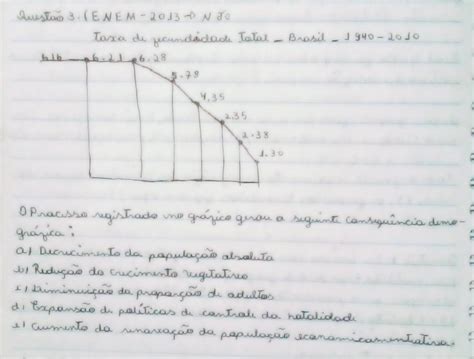 Questão 3. (ENEM - 2013 → N 30
Taxa de fecundidade Total - Brasil - 1940-2010
6.16 6.21 6.28
5.78
4.35
2.35
2.38
1.30
O Processo registrado no gráfico gerou a seguinte consequência demo-
gráfica:
a) Decrecimento da população absoluta
b) Redução do crecimento vegetativo
c) Diminuição da proporção de adultos
d) Expansão de políticas de controle da natalidade
e) Aumento da renovação da população economicamente ativa.